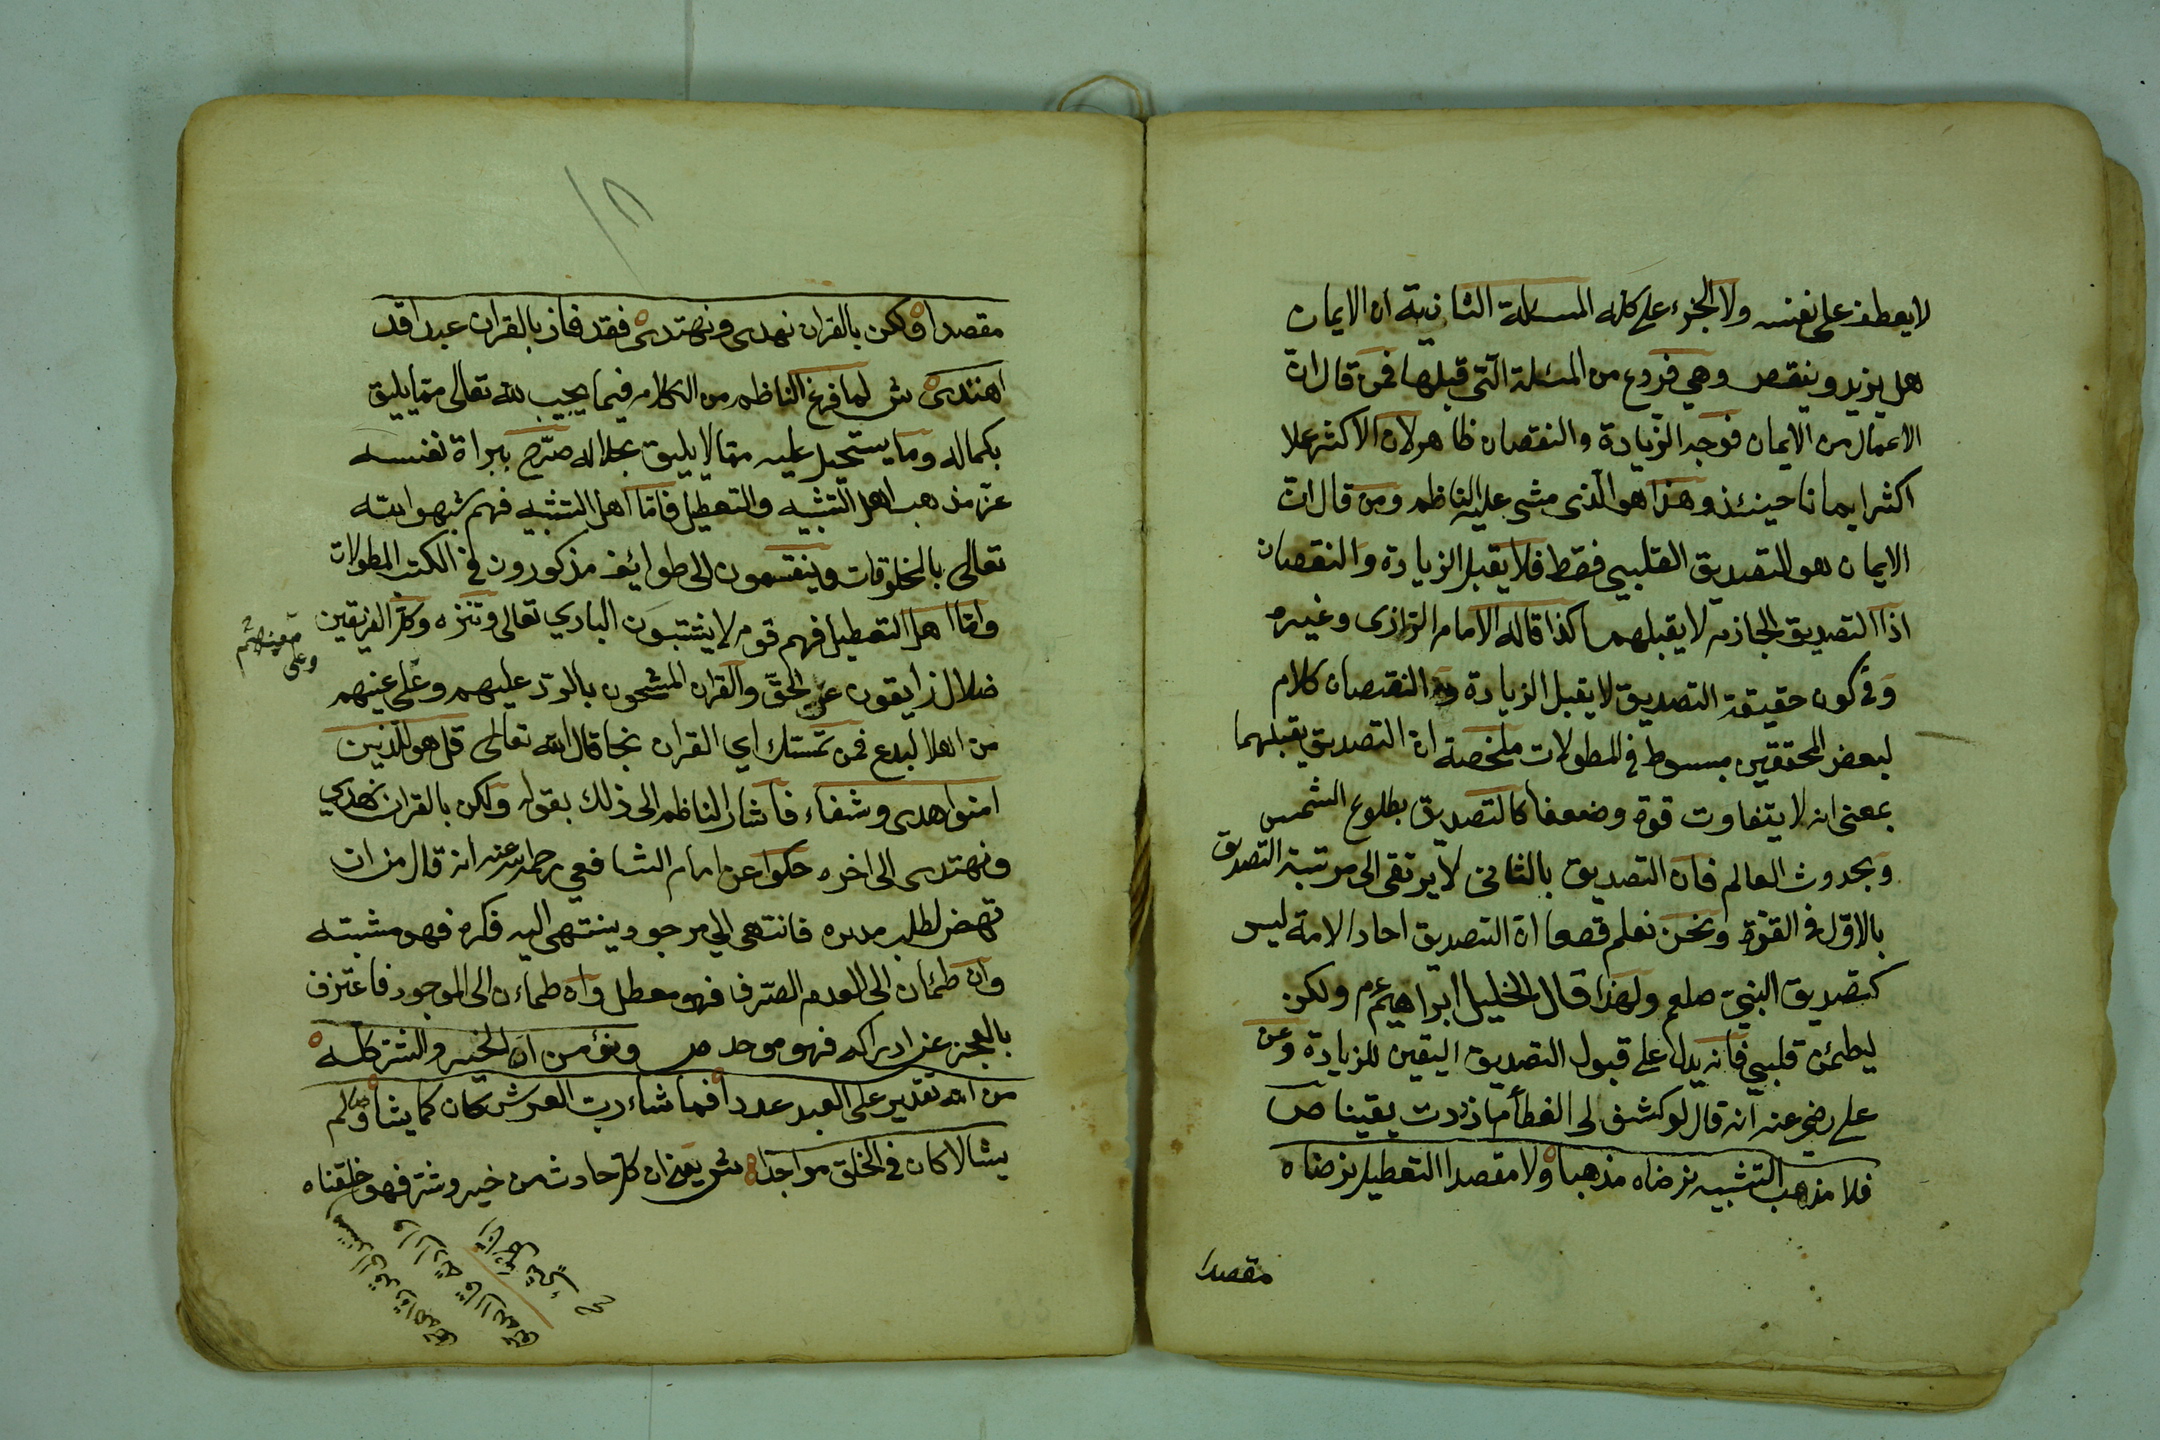 لا يعطف على نفسه ولا الجزء على كله المسئلة الثانية ان الايمان
هل يزيد وينقص وهي فروع من المسئلة التي قبلها فمن قال ان
الاعمال من الايمان فوجه الزيادة والنقصان ظاهر لان الاكثر عملا
اكثر ايمانا حينئذ وهذا هو الذى مشى عليه الناظم ومن قال ان
الايمان هو التصديق القلبي فقط فلا يقبل الزيادة والنقصان
اذا التصديق الجازم لا يقبلهما كذا قاله الامام الرازى وغيره
وفي كون حقيقة التصديق لا يقبل الزيادة والنقصان كلام
لبعض المحققين مبسوط في المطولات ملخصة ان التصديق يقبلهما
بمعنى انه لا يتفاوت قوة وضعفا كالتصديق بطلوع الشمس
وبحدوث العالم فان التصديق بالثانى لا يرتقى الى مرتبة التصديق
بالاول في القوة ونحن نعلم قصعا ان التصديق احاد الامة ليس
كتصديق النبي صلعم ولهذا قال الخليل ابراهيم عم ولكن
ليطمئن قلبي فانه يدل على قبول التصديق اليقين للزيادة وعن
على رضي عنه انه قال لو كشف لى الغطأ ما ذددت يقينا ص
فلا مذهب التشبيه نرضاه مذهبا ولا مقصدا التعطيل نرضاه
مقصدا
١٨
مقصدا ولكن بالقران نهدى ونهتدى فقد فاز بالقران عبد اقد
اهتدى ش لما فرغ الناظم من الكلام فيما يجب لله تعالى مما يليق
بكماله وما يستحيل عليه مما لا يليق بجلاله صرح ببراة نفسه
عن مذهب اهل التشبيه والتعطيل فاما اهل التشبيه فهم شبهوا الله
تعالى بالمخلوقات وينقسمون الى طوائف مذكورون في الكتب المطولات
واما اهل التعطيل فهم قوم لا يثبتون الباري تعالى وتنزه وكلا الفريقين
ضلال زايقون عن الحق والقران المشحون بالرد عليهم وعلى غيرهم
من اهل البدع فمن تمسك اي القران نجا قال الله تعالى قل هو للذين
امنوا هدى وشفاء فاشار الناظم الى ذلك بقوله ولكن بالقران نهدي
ونهتدى الى اخره حكوا عن امام الشافعي رحمه الله عنه انه قال من ان
تهض لطلب مدبره فانتهى الي موجود ينتهى اليه فكره فهو مشبته
وان طمئان الى العدم الصرف فهو معطل وان طماءن الى الموجود فاعتزف
بالعجز عن ادراكه فهو موحد ص ونؤمن ان الخير والشر كله
من الله تقدير على العبد عددا فما شاء رب العرش كان كما يشا وما لم
يشا لا كان في الخلق مواجدا ش يعني ان كل حادث من خير وشر فهو خلقناه